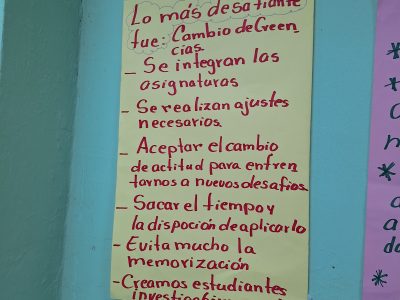 Lo más desafiante
fue: Cambio de Creen
cias
- Se integran las
asignaturas
- Se realizan ajustes
necesarios
- Aceptar el cambio
de actitud para enfren
tarnos a nuevos desafios
- Sacar el tiempo y
la dispoción de aplicarlo
- Evita mucho la
memorización
- Creamos estudiantes